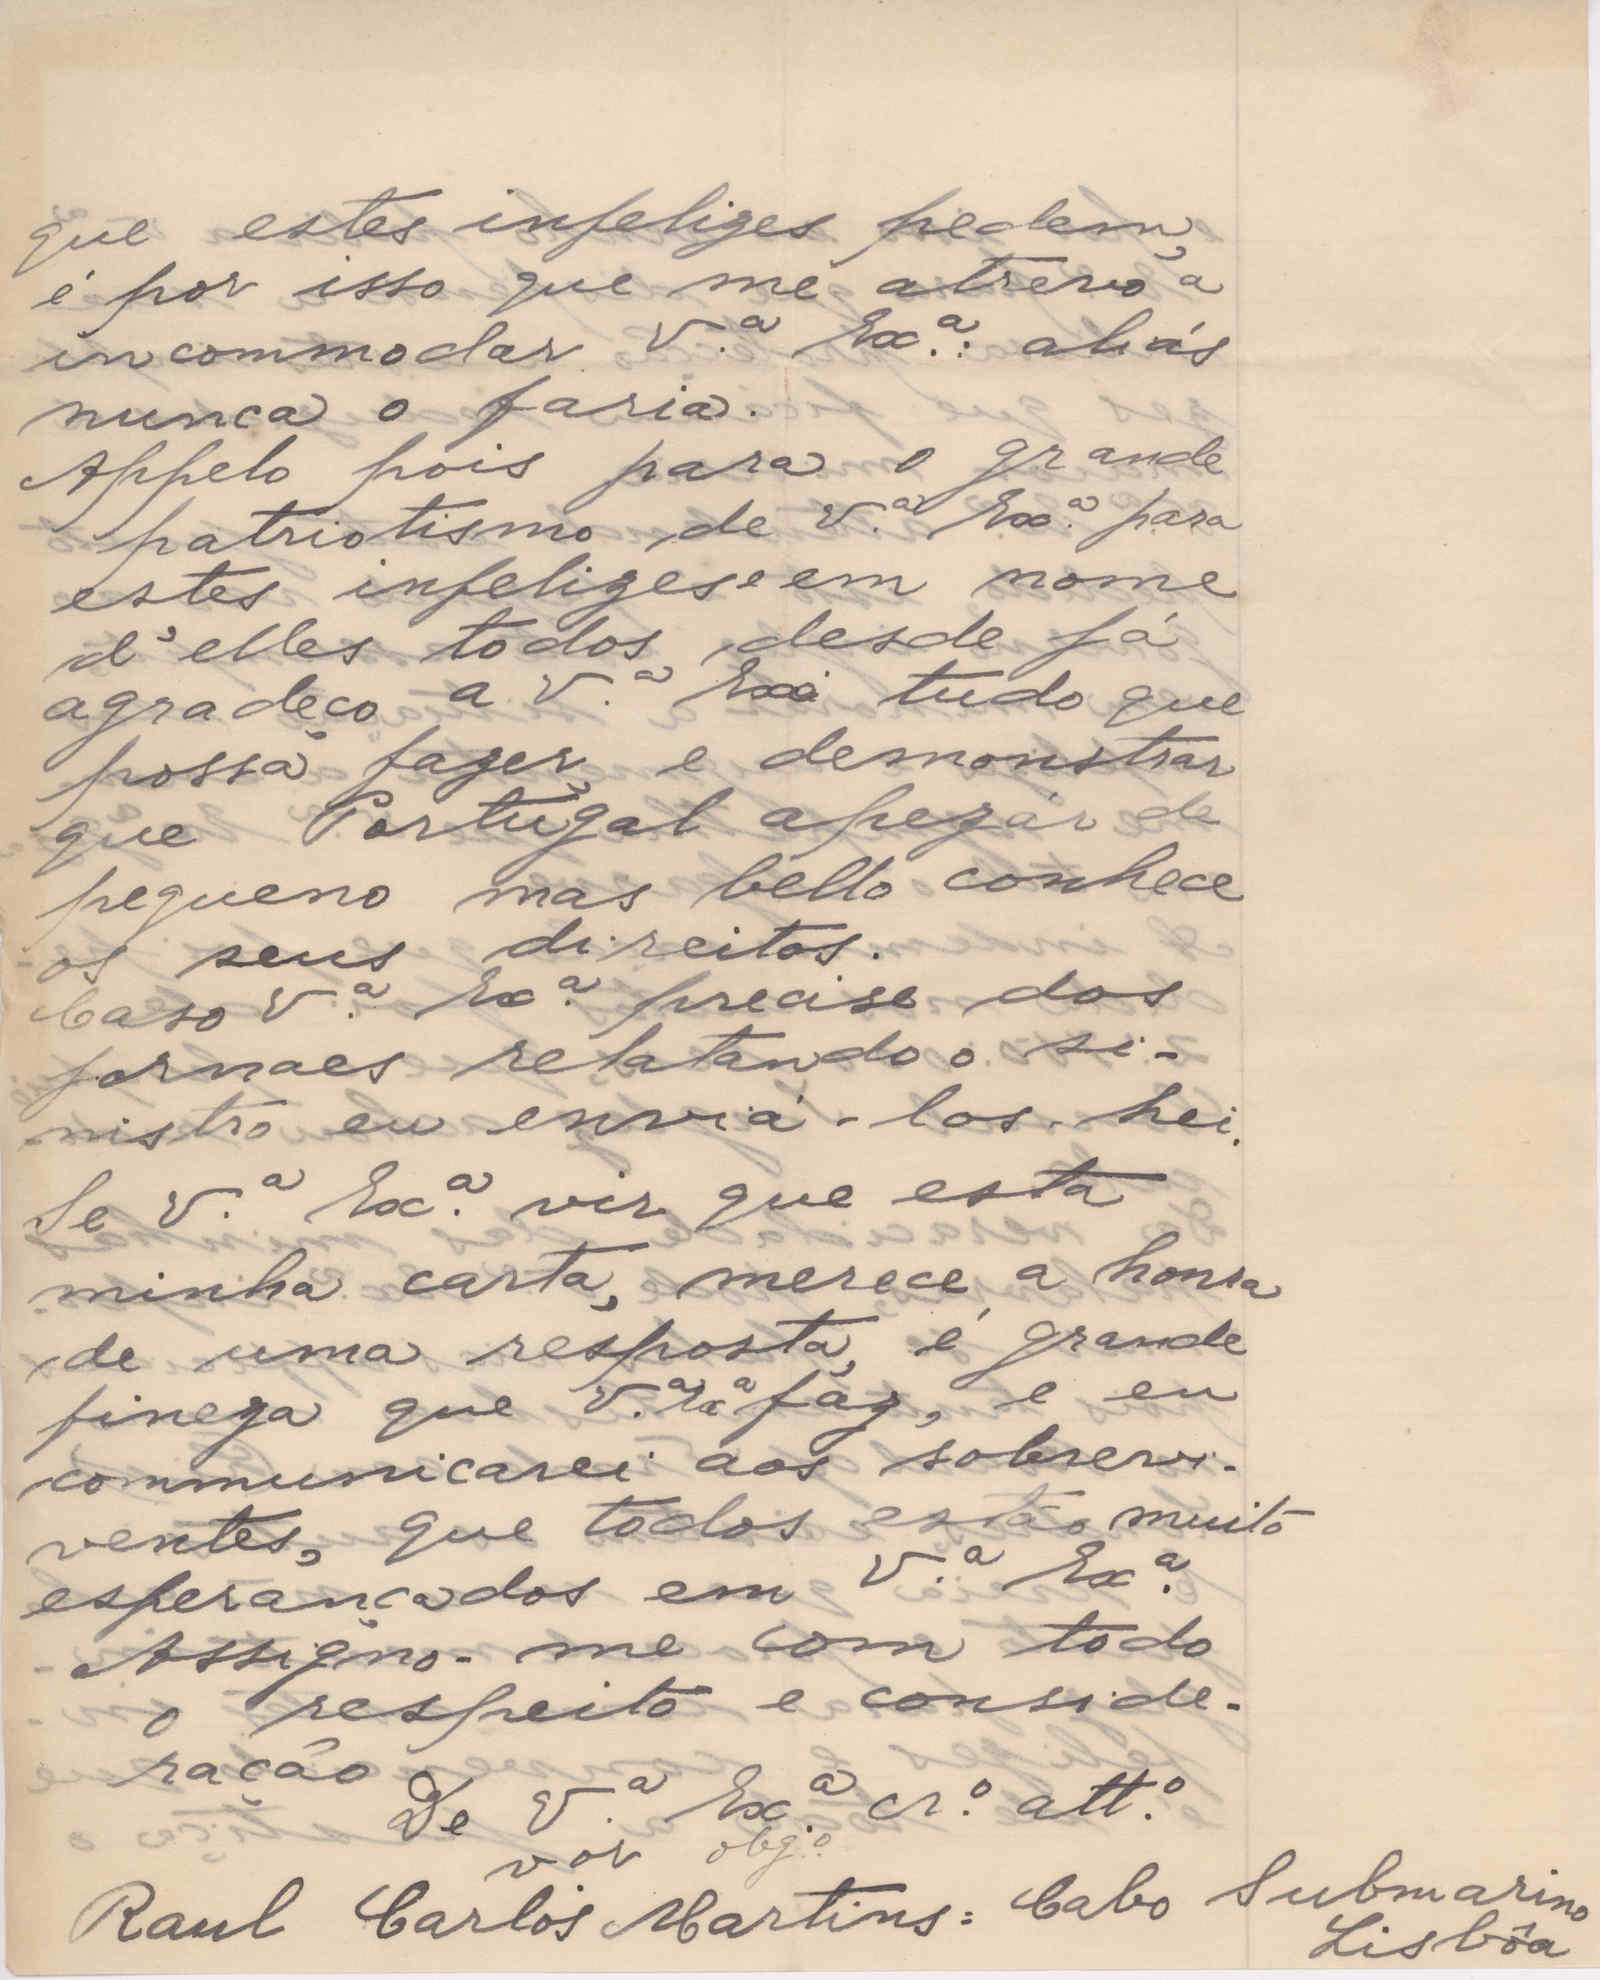 que estes infelizes pedem,
é por isso que me atrevo a
incommodar V.ª Ex.ª: aliás
nunca o faria.
Appelo pois para o grande
patriotismo de V.ª Ex.ª para
estes infelizes e em nome
d'elles todos, desde já
agradeço a V.ª Exª tudo que
possa fazer, e demonstrar
que Portugal apezár de
pequeno mas bello conhece
os seus direitos.
Caso V.ª Ex.ª precise dos
jornaes relatando o si-
nistro eu enviá-los-hei.
Se V.ª Ex.ª vir que esta
minha carta, merece a honra
de uma resposta, é grande
fineza que V.ª Exª fáz, e eu
communicarei aos sobrevi-
ventes, que todos estão muito
esperançados em V.ª Ex.ª
Assigno-me com todo
o respeito e conside-
ração
De V.ª Ex.ª cr.º att.º
vor obg.º
Raul Carlos Martins: Cabo Submarino
Lisbôa